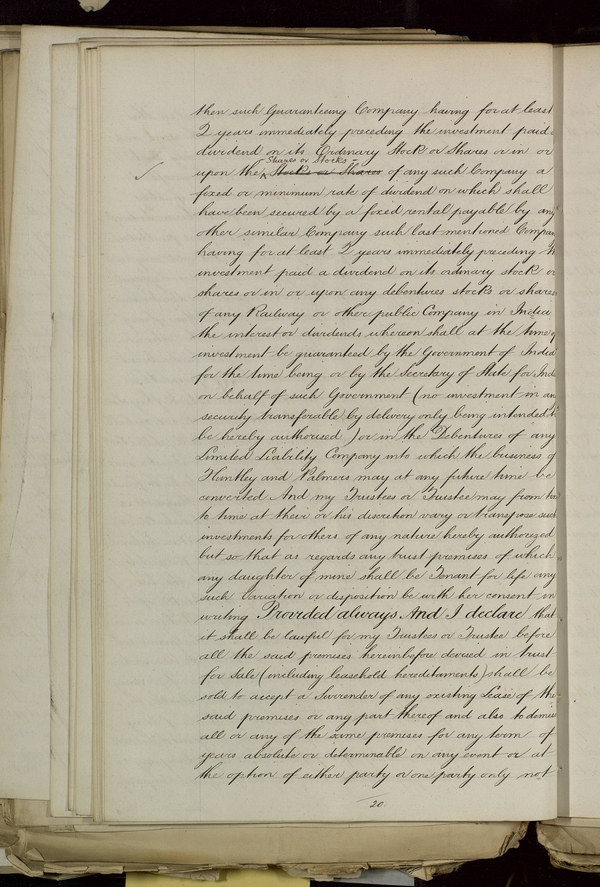 then such Guaranteeing Company having for at least
2 years immediately preceding the investment paid
dividend on its Ordinary Stock or Shares or in or
Shares or Stocks
upon the Stocks or Shares of any such Company a
fixed or minimum rate of dividend on which shall
have been secured by a fixed rental payable by any
other similar Company such last mentioned Compan
having for at least 2 years immediately preceding th
investment paid a dividend on its ordinary stock o
shares or in or upon any debentures stocks or shares
of any Railway or other public Company in India
the interest or dividends whereon shall at the time of
investment be guaranteed by the Government of India
for the time being or by the Secretary of State for Ind
on behalf of such Government (no investment in an
security transferable by delivery only being intended t
be hereby authorised ) or in the Debentures of any
Limited Liability Company into which the business of
Huntley and Palmers may at any future time be
converted And my Trustees or Trustee may from tim
to time at their or his discretion vary or transpose such
investments for others of any nature hereby authorized
but so that as regards any trust premises of which
any daughter of mine shall be Tenant for life any
such variation or disposition be with her consent in
writing Provided always And I declare that
it shall be lawful for my Trustees or Trustee before
all the said premises hereinbefore devised in trust
for Sale (including leasehold hereditaments) shall be
sold to accept a Surrender of any existing Lease of the
said premises or any part thereof and also to demise
all or any of the same premises for any term of
years absolute or determinable on any event or at
the option of either party or one party only not
20